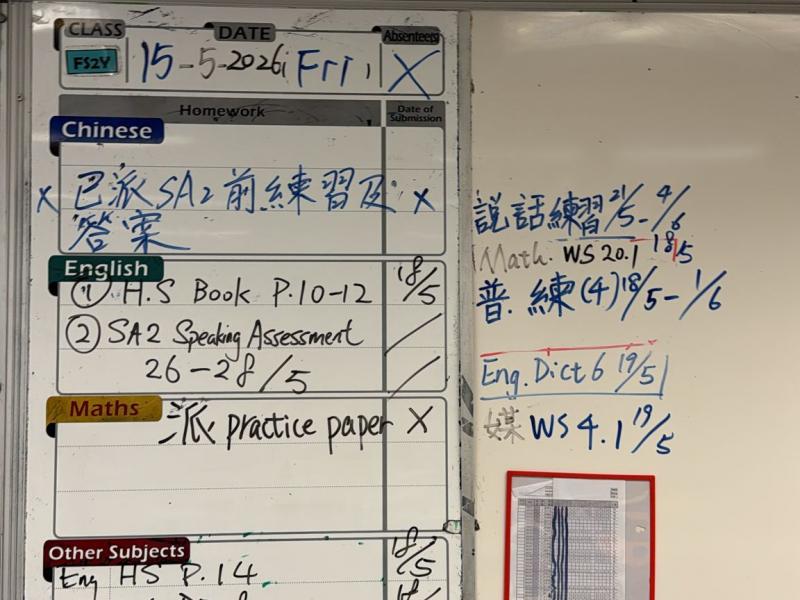 CLASS DATE Absentees
FS2Y 15-5-2026, Fri, X
Homework Date of Submission
Chinese
x 已派SA2前練習及 x
答案
English
① H.S Book P.10-12 18/5
② SA2 Speaking Assessment /
26-28/5 /
Maths
派 practice paper X
Other Subjects
Eng HS P.14 18/5
說話練習 21/5-4/6
Math. WS 20.1 18/5
普. 練(4) 18/5-1/6
Eng. Dict 6 19/5
媒 WS 4.1 19/5